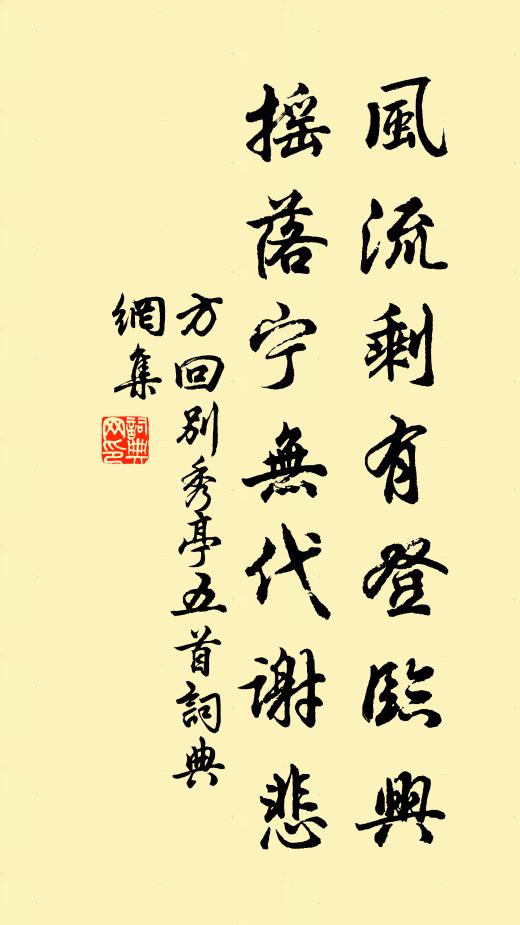 風流剩有登臨興
摇落宁無代謝悲
方回别秀亭五首詞典
網集
詞典
网印